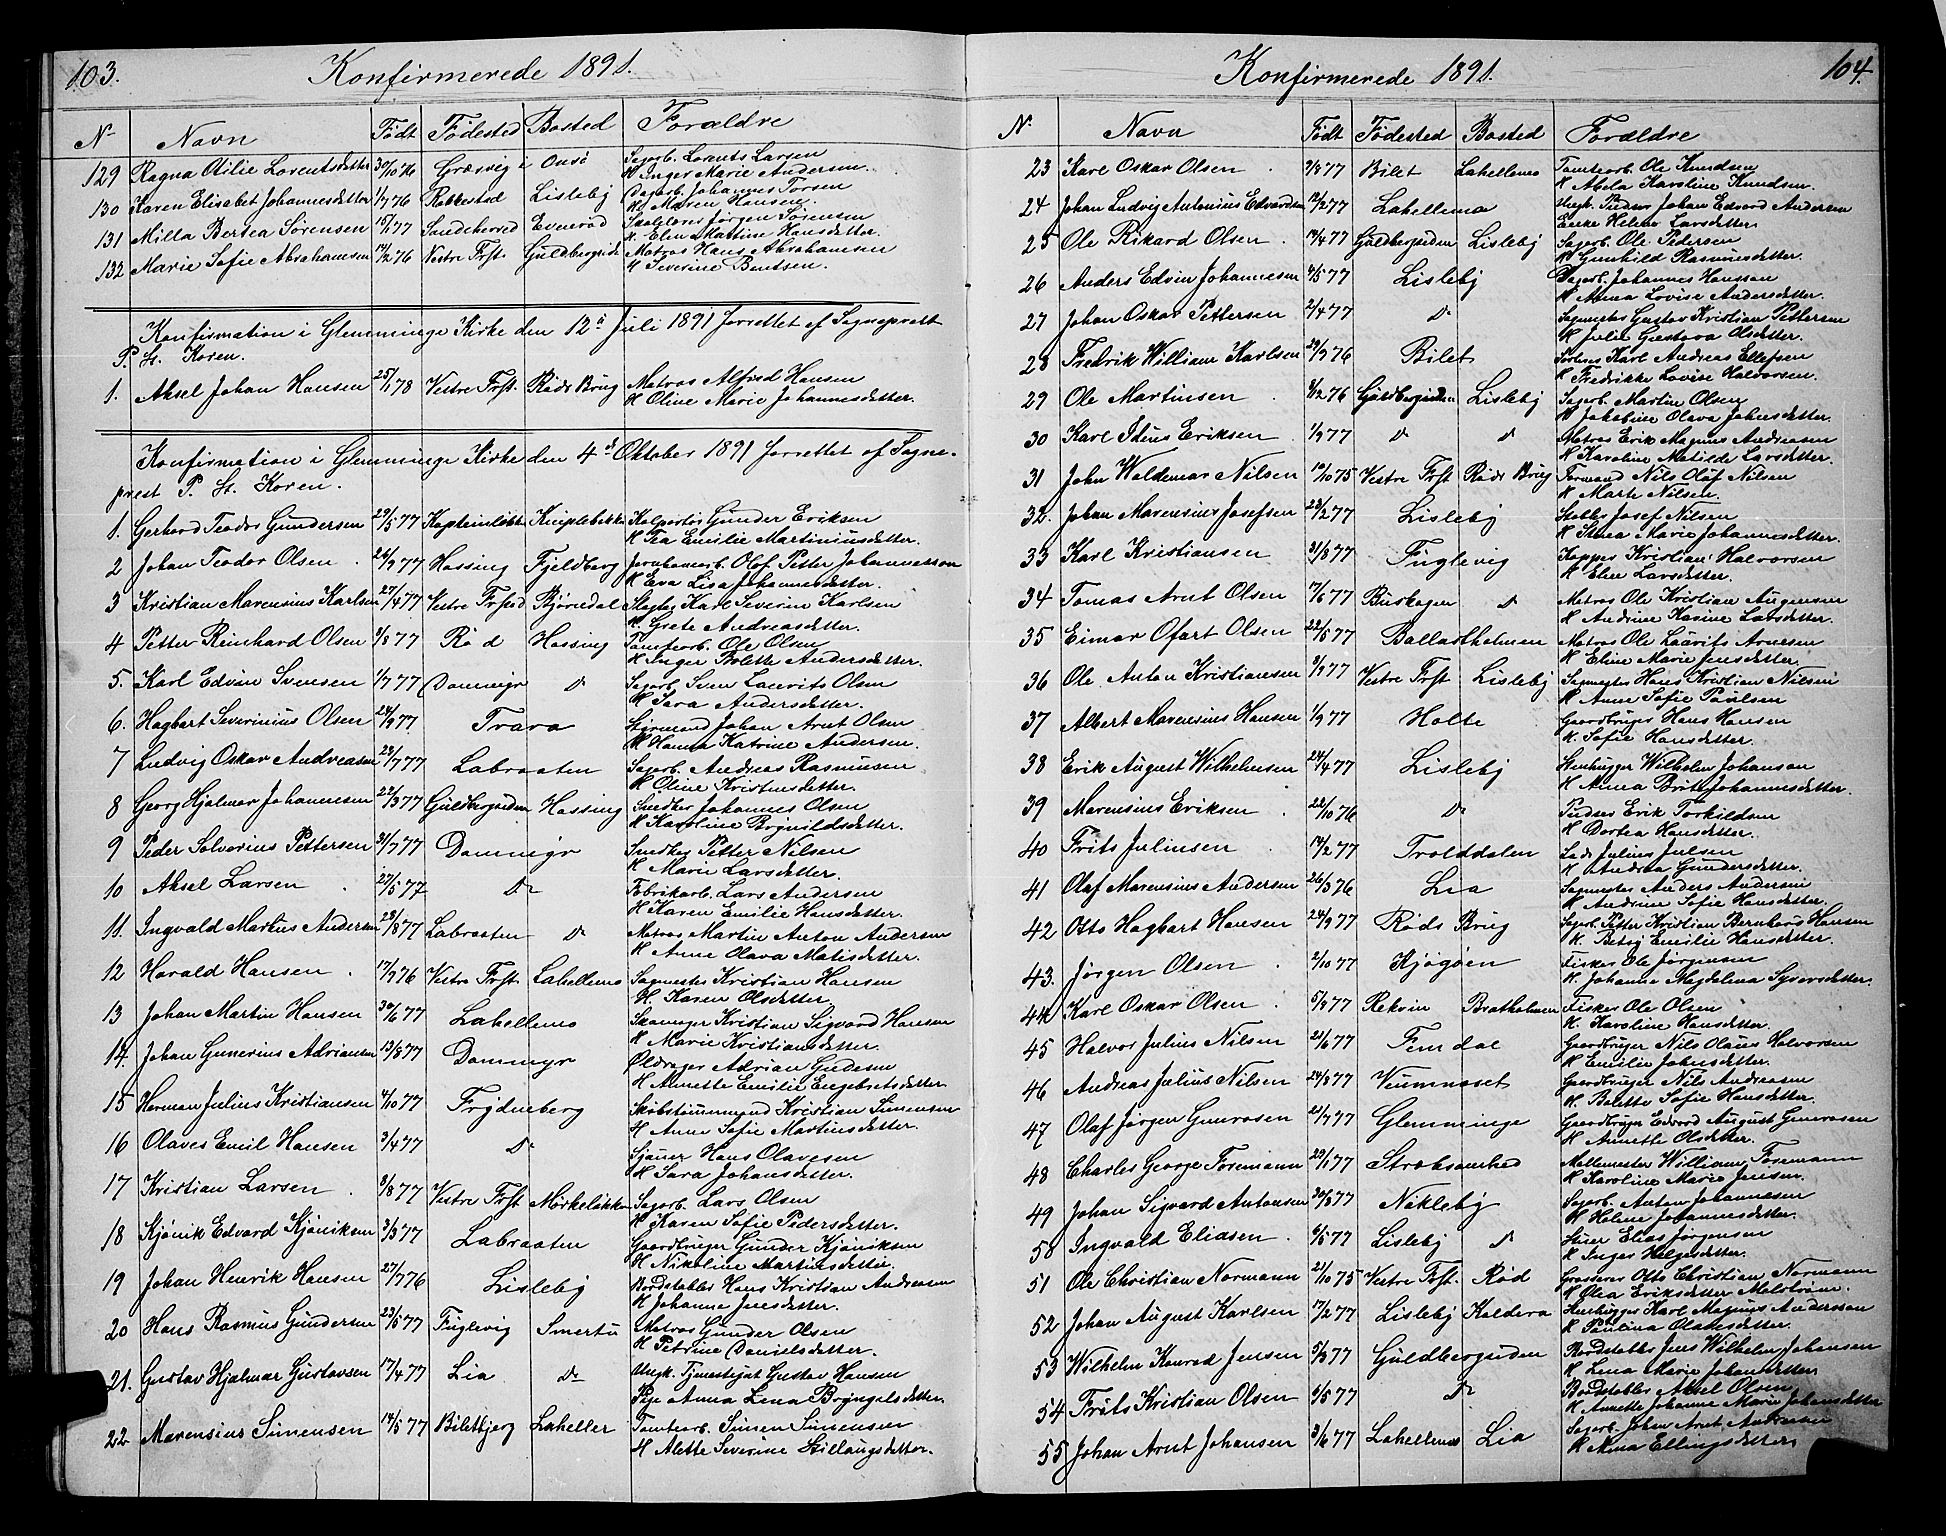 103.
Konfirmerede 1891.
No Navn Født Fødested Bosted Forældre
129 Ragna Otilie Lorentsdetter 30/10 76 Græsvig i Onsø Sagarb. Lorents Larsen
H Inger Marie Andersen.
130 Karen Elisabet Johannesdetter 1/7 76 Rakkestad Lislebÿ Dagarb. Johannes Torsen
H. Maren Hansen.
131 Milla Bertea Sörensen Evenrød Jørgen Sörensen
H. Elen Martine Hansdetter.
132 Marie Sofie Abrahamsen 14/2 76 Vestre Frst. Guldbergsida Matros Hans Abrahamsen
H Severine Bentsen.
Konfirmation i Glemminge Kirke den 12te Juli 1891 forrettet af Sogneprest
P. H. Koren.
1. Aksel Johan Hansen 25/1 78 Vestre Frst. Røds Brug Matros Alfred Hansen
H Oline Marie Johannesdetter.
Konfirmation i Glemminge Kirke den 4de Oktober 1891 forrettet af Sogne-
prest P. H. Koren.
1. Gerhard Teodor Gundersen 29/5 77 Kolportør Gunder Eriksen
H Tea Emilie Martiniusdetter.
2 Johan Teodor Olsen 26/9 77 Hassing Fjeldberg Jernbanearb. Olof Petter Johannesson
H Eva Lisa Johannesdetter.
3 Kristian Marensius Karlsen 27/4 77 Vestre Frstad Bjørnedal Karl Severin Karlsen
H. Grete Andreasdetter.
4 Petter Reinhard Olsen 4/8 77 Rød Hassing Tomtearb. Ole Olsen
H Inger Bolette Andersdetter.
5. Karl Edvin Svensen 1/7 77 Dammyr do Sagarb. Sven Laurits Olsen
H Sara Andersdetter.
6. Hagbart Severinius Olsen 24/9 77 Trara Styrmand Johan Arnt Olsen
H Hanna Katrine Andersen.
7 Ludvig Oskar Andreasen 23/7 77 Labraaten Sagarb. Andreas Rasmussen
H Oline Kristinsdetter.
8 Georg Hjalmar Johannesen 22/3 77 Guldbergsiden Hassing Snedker Johannes Olsen
H Karoline Brÿnildsdetter.
9 Peder Solverius Pettersen 31/7 77 Dammyr Snedker Petter Nilsen
H Marie Larsdetter.
10 Aksel Larsen 27/5 77 do Fabrikarb. Lars Andersen
H Karen Emilie Hansdetter.
11. Ingvald Martius Andersen 28/8 77 Labraaten do Matros Martin Anton Andersen
H Anne Olava Matisdetter.
12 Harald Hansen 17/9 76 Vestre Frst. Lahellemo Sagmester Kristian Hansen
H. Karen Olsdetter
13 Johan Martin Hansen 30/6 77 Lahellemo Skomager Kristian Sigvard Hansen
H Marie Kristiansdetter.
14. Johan Gunerius Adriansen 13/8 77 Dammyr Øldrager Adrian Gudesen
H Annette Emilie Engebretsdetter
15 Herman Julius Kristiansen 4/10 77 Frÿdenberg Skibstømmermand Kristian Simensen
H Anne Sofie Martinsdetter.
16 Olaves Emil Hansen 3/4 77 do Sjauer Hans Olavesen
H Sara Johansdetter.
17 Kristian Larsen 8/8 77 Vestre Frst Mørkeløkken Sagarb. Lars Olsen
H Karen Sofie Pedersdetter.
18 Kjönik Edvard Kjöniksen 3/3 77 Labraaten Gaardbruger Gunder Kjöniksen
H Nikoline Martinsdetter.
19 Johan Henrik Hansen 27/7 76 Lislebÿ Bordstabler Hans Kristian Andreasen
H Johanne Jensdetter.
20 Hans Rasmus Gundersen 23/5 77 Fuglevig Smertu Matros Gunder Olsen
H Petrine Danielsdetter.
21. Gustav Hjalmar Gustavsen 17/4 77 Lia do Ungk. Gustav Hansen
Pige Anna Lena Bryngelsdetter.
22 Marensius Simensen 14/5 77 Biletbjerg Laheller Tomtearb. Simen Simensen
H Alette Severine Erillaugsdetter.
Konfirmerede 1891.
104.
No Navn Født Fødested Bosted Forældre
23 Karl Oskar Olsen Bilet Lahellemo Tomtearb. Ole Knudsen
H Abela Karoline Knudsen.
24 Johan Ludvig Antonius Edvardsen 12/2 77 Lahellemo Ungk. Pudser Johan Edvard Andersen
Enke Helene Larsdetter
25 Ole Rikard Olsen 14/4 77 Guldbergsiden Lislebÿ Sagarb. Ole Pedersen
H Gunhild Rasmusdetter.
26 Anders Edvin Johannesen 4/5 77 Lislebÿ Dagarb. Johannes Hansen
H Anna Lovise Andersdetter.
27 Johan Oskar Pettersen 2/4 77 do Sagmester Gustav Kristian Pettersen
H Julie Gustava Olsdetter.
28 Fredrik William Karlsen 29/7 76 Bilet Karl Andreas Ellefsen
H Fredrikke Lovise Halvorsen.
29 Ole Martinsen 8/12 76 Guldbergsiden Lislebÿ Sagarb. Martin Olsen
H Jakobine Olava Johnsdetter.
30 Karl Eriksen 1/9 77 do do Matros Erik Magnus Andreasen
H Karoline Matilde Larsdetter.
31 John Woldemar Nilsen 19/10 75 Vestre Frst Røds Brug Formand Nils Olaf Nilsen
H Marte Nilsen.
32. Johan Marensius Josefsen 23/2 77 Lislebÿ Stabler Josef Nilsen
H Stina Marie Johannesdetter.
33 Karl Kristiansen 31/8 77 Fuglevig Kristian Halvorsen
H Elen Larsdetter.
34 Tomas Arnt Olsen 17/6 77 Buskogen do Matros Ole Kristian Augensen
H Andrine Karine Larsdetter.
35 Eimar Ofart Olsen 22/5 77 Ballastholmen Matros Ole Laurits Arnesen
H Eline Marie Jensdetter.
36 Ole Anton Kristiansen 3/9 77 Vestre Frst Lislebÿ Sagmester Hans Kristian Nilsen
H Anne Sofie Paulsen
37 Albert Marensius Hansen 1/9 77 Holte Gaardbruger Hans Hansen
H. Sofie Hansdetter.
38 Erik August Wilhelmsen 24/4 77 Lislebÿ Stenhugger Wilhelm Johanson
H Anna Brita Johannesdetter.
39 Marensius Eriksen 22/10 76 do Pudser Erik Torkildsen
H Dortea Hansdetter.
40 Frits Juliusen 14/2 77 Trolddalen Lods Julius Julsen
H Andrea Gundersdetter.
41 Olaf Marensius Andersen 26/3 76 Lia Sagmester Anders Andersen
H Andrine Sofie Hansdetter.
42 Otto Hagbart Hansen 24/9 77 Røds Brug Sagarb. Petter Kristian Bernhard Hansen
H. Betsÿ Emilie Hansdetter.
43. Jörgen Olsen 2/10 77 Kjøgöen Fisker Ole Jörgensen
H. Johanne Magdalena Syversdetter.
44 Karl Oskar Olsen 5/9 77 Rekvin Bratholmen Fisker Ole Olsen
H. Karoline Hansdetter.
45 Halvor Julius Nilsen 21/6 77 Femdal Gaardbruger Nils Olaus Halvorsen
H Emilie Johnsdetter.
46 Andreas Julius Nilsen 24/8 77 Veumnesset Gaardbruger Nils Andreasen
H. Bolette Sofie Hansdetter.
47 Olaf Jörgen Gunrosen 21/7 77 Glemminge Gaardbruger Edvard August Gunrosen
H Annette Olsdetter.
48 Charles George Foremann 29/1 77 Møllemester William Foremann
H Karoline Marie Jensen.
49 Johan Sigvard Antonsen 30/8 77 Niklebÿ Sagarb. Anton Johannesen
H Helene Johannesdetter.
50 Ingvald Eliasen 6/5 77 Lislebÿ do Elias Jørgensen
H Inger Helgesdetter.
51 Ole Christian Normann 21/10 75 Vestre Frst. Rød Grosserer Otto Christian Normann
H Olea Eriksdetter
52 Johan August Karlsen 17/2 77 Lislebÿ Kaldera Stenhugger Karl Magnus Anderssen
H Paulina Olavesdetter.
53 Wilhelm Konrad Jensen 9/3 77 Guldbergsiden Bordstabler Jens Wilhelm Johansen
H. Lena Marie Johansdetter
54 Frits Kristian Olsen 6/5 77 do Bordstabler Aksel Olsen
H Annette Johanne Marie Johansdetter
55 Johan Arnt Johansen 3/6 77 Lahellemo Lia Sagarb. Johan Arnt Andersen
H Anna Ellingsdetter